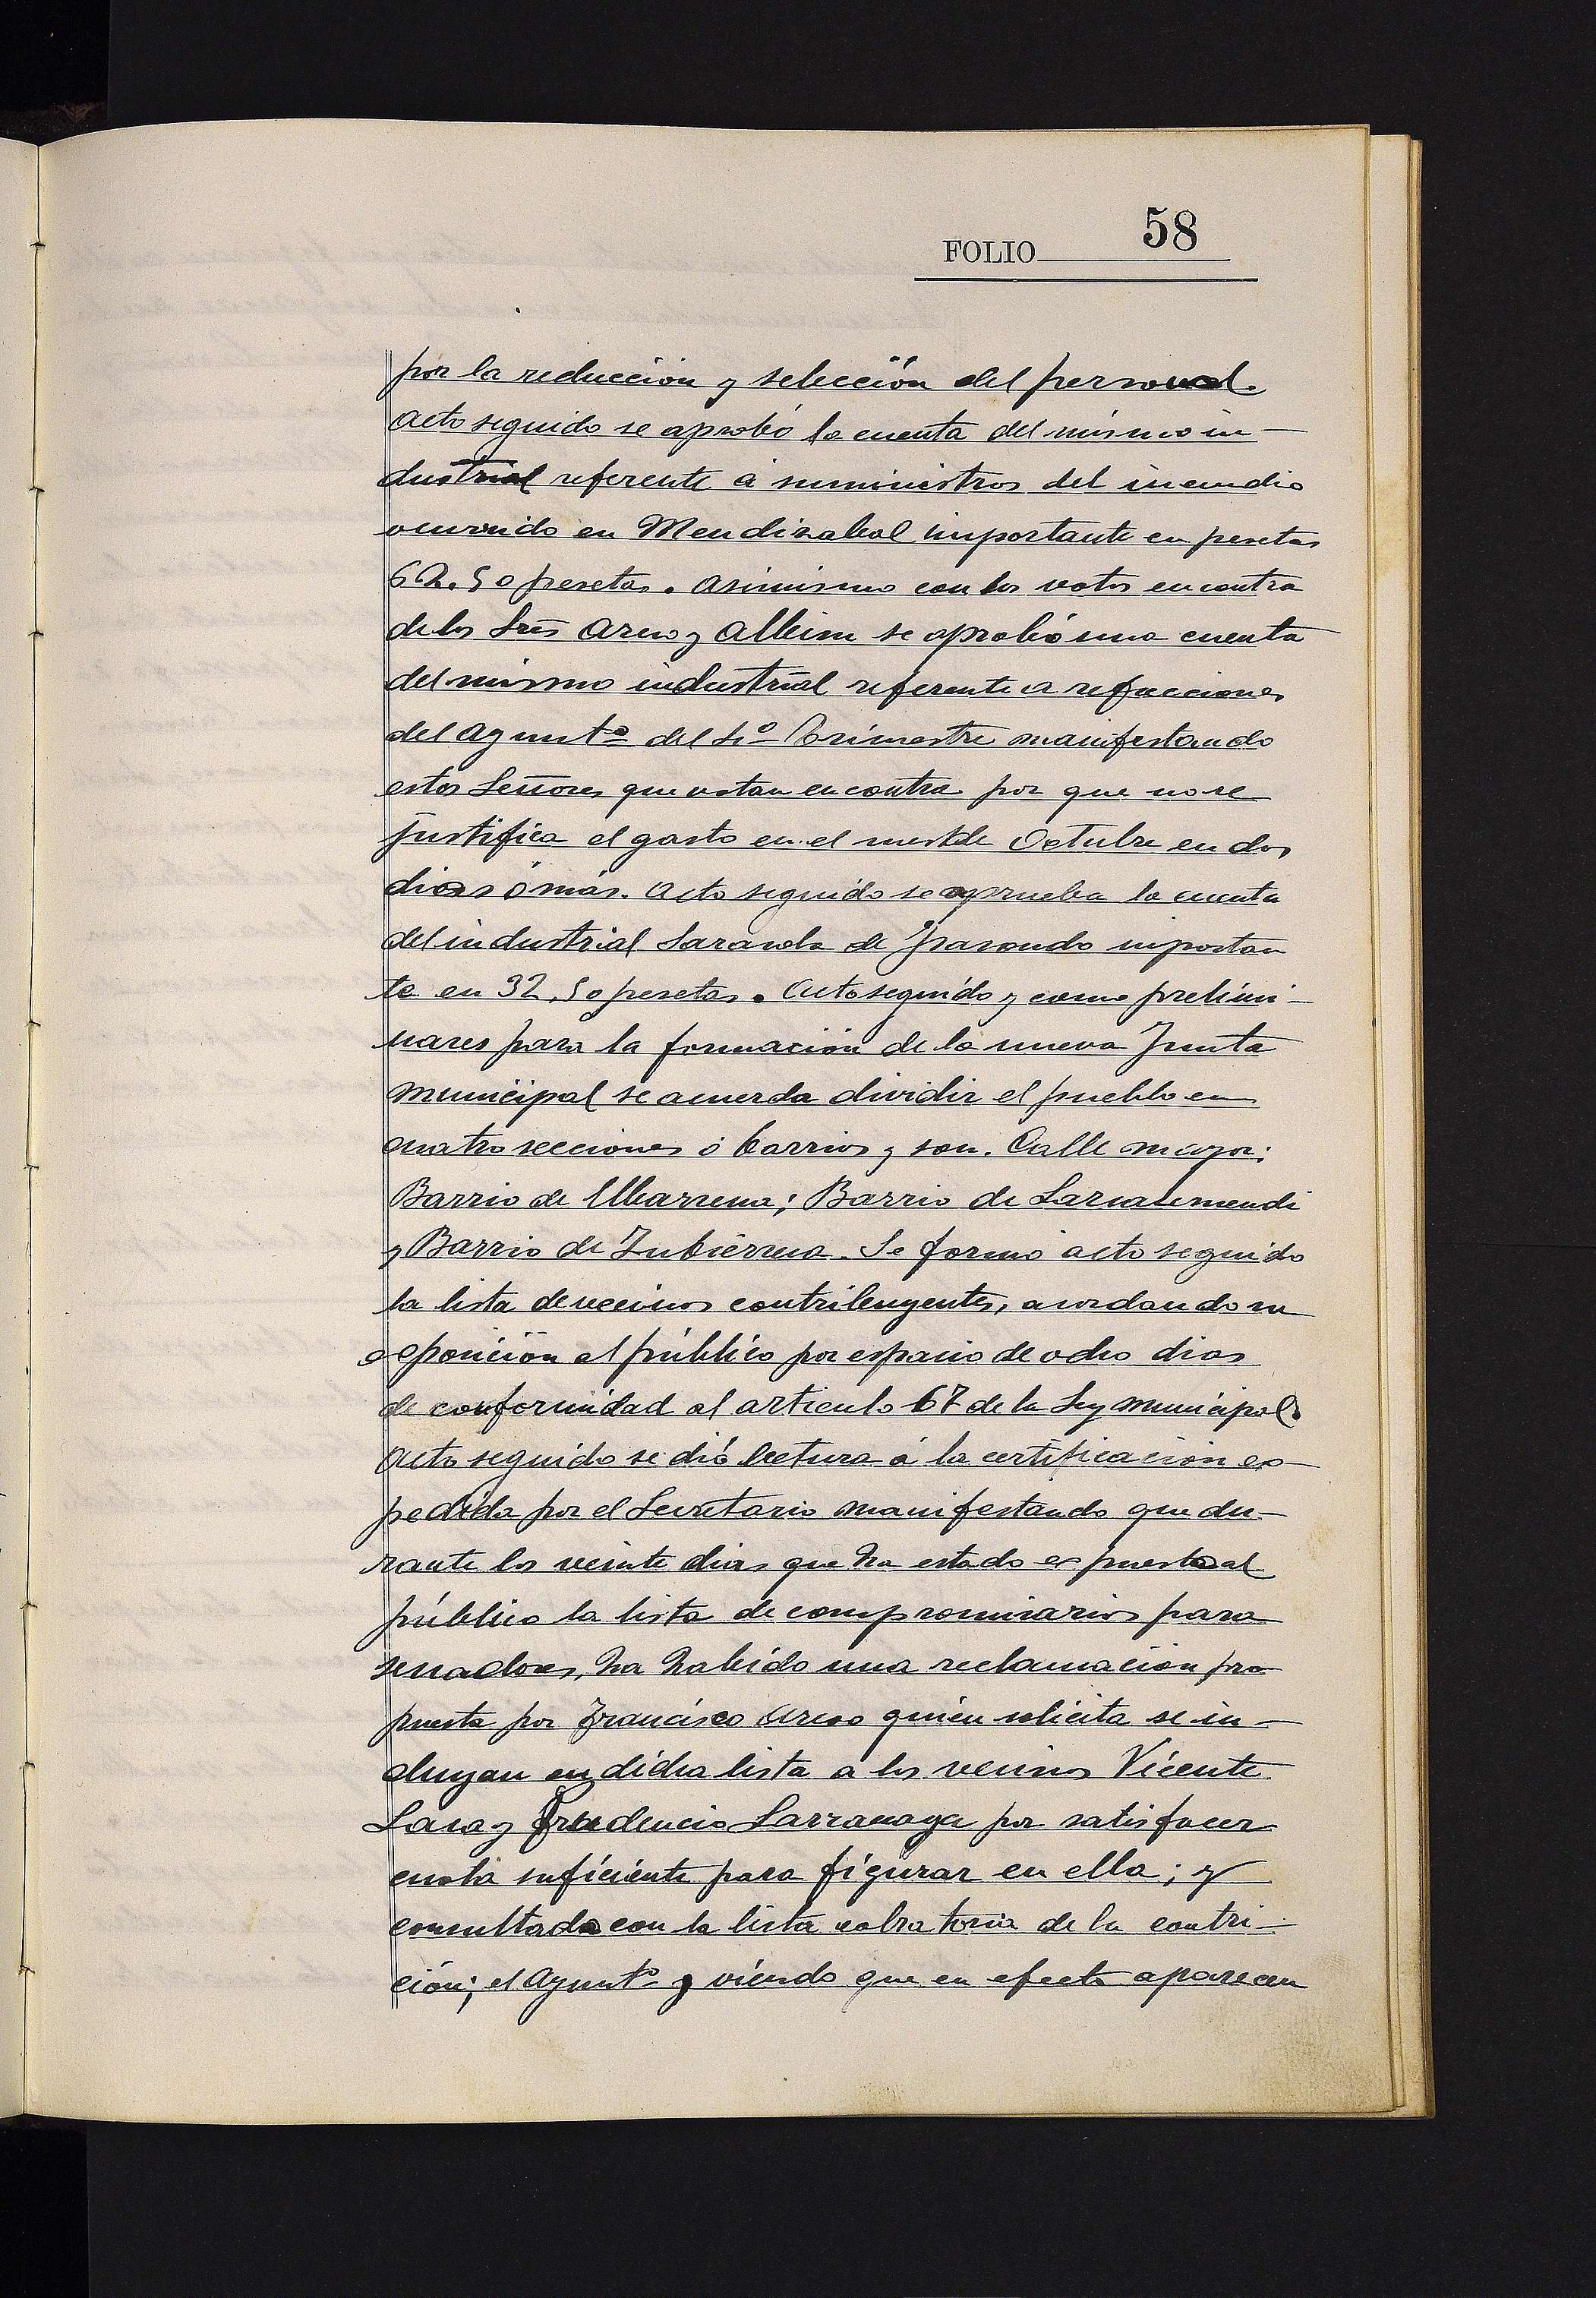 FOLIO 58
por la reducción y selección del personal.
Acto seguido se aprobó la cuenta del mismo in-
dustrial referente á suministros del incendio
ocurrido en Mendizabal importante en pesetas
62.50 pesetas. Asimismo con los votos en contra
de los Sres Arco y se aprobó una cuenta
del mismo industrial referente a refacciones
del Ayuntº del 4º Trimestre manifestando
estos Señores que votan en contra por que no se
justifica el gasto en el mes de Octubre en dos
dias ó más. Acto seguido se aprueba la cuenta
del industrial Sarasola de importan
te en 32,50 pesetas. Acto seguido y como prelimi-
nares para la formación de la nueva Junta
municipal se acuerda dividir el pueblo en
cuatro secciones ó barrios y son. Calle mayor:
Barrio de Ubarrena; Barrio de
y Barrio de Zubierrena. Se formó acto seguido
la lista de vecinos contribuyentes, acordando su
exposición al público por espacio de ocho dias
de conformidad al articulo 67 de la Ley municipal.
Acto seguido se dió lectura á la certificación ex-
pedida por el Secretario manifestando que du-
rante los veinte dias que ha estado expuesta al
público la lista de compromisarios para
senadores, ha habido una reclamación pro
puesta por Francisco Arco quien solicita se in-
cluyan en dicha lista a los vecinos Vicente
Lasa y Prudencio Larrañaga por satisfacer
cuota suficiente para figurar en ella; y
consultada con la lista cobratoria de la contri-
ción; el Ayuntº y viendo que en efecto aparecen